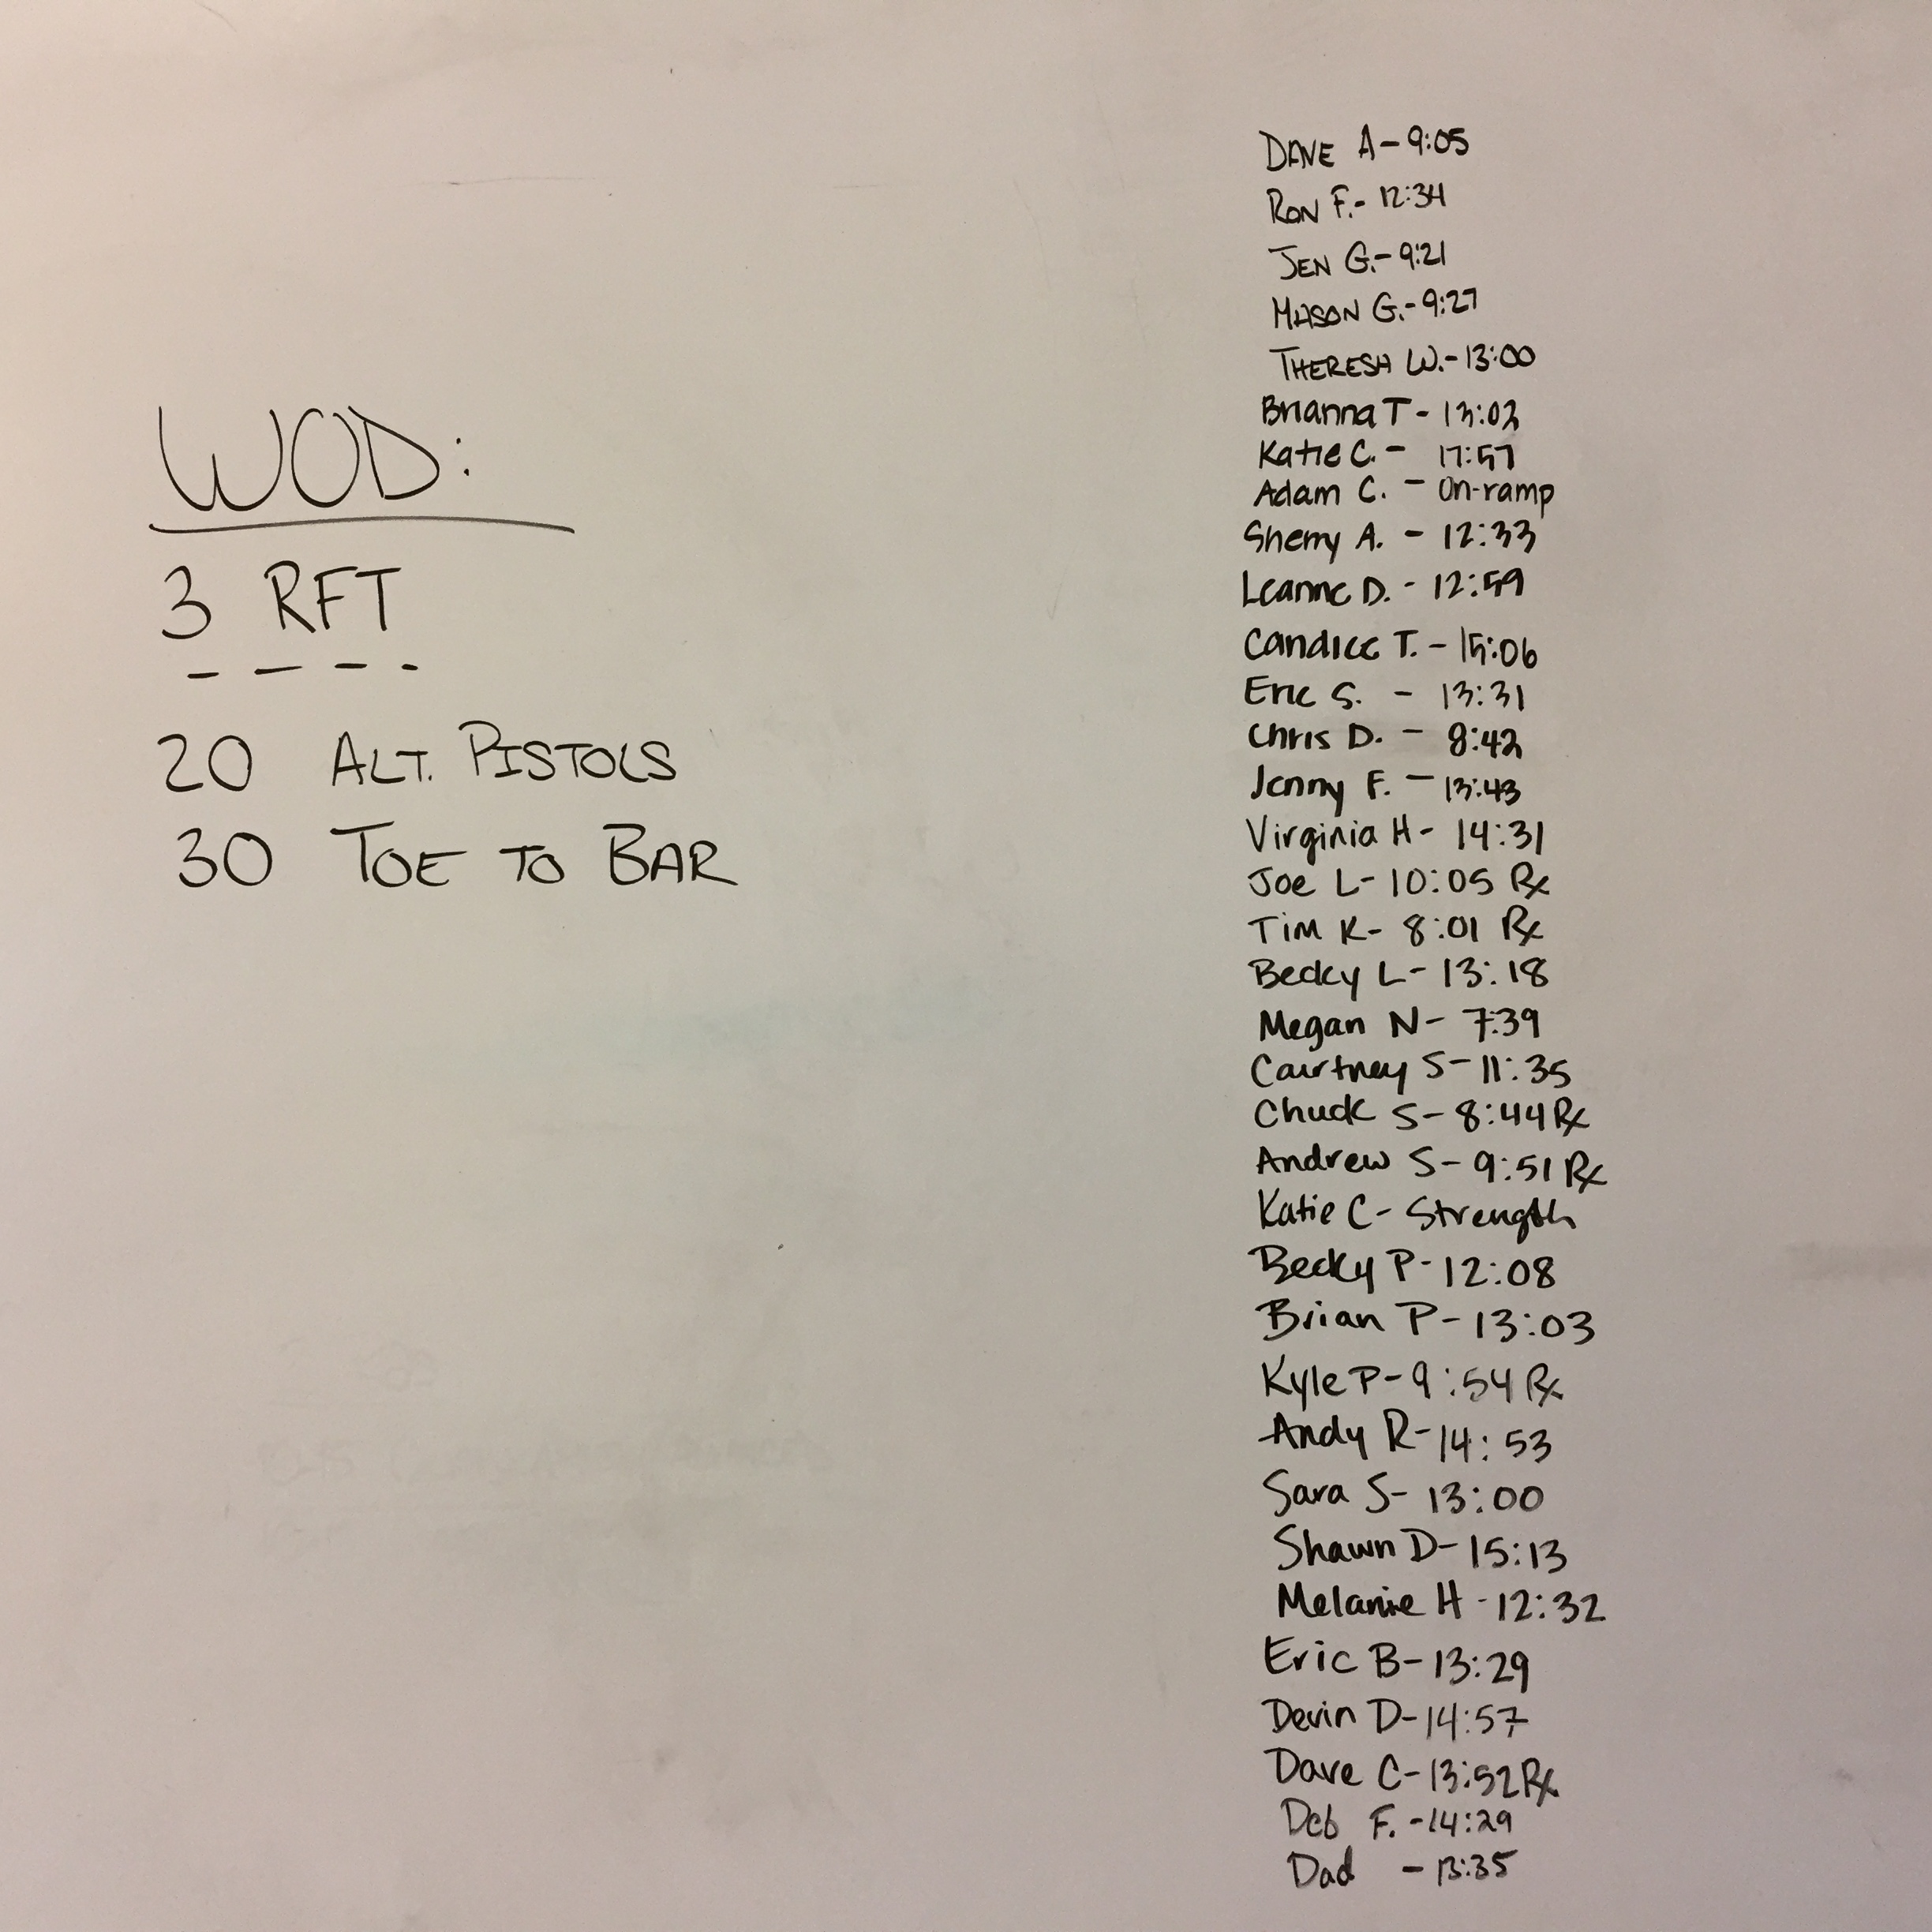 WOD:
3 RFT
- - - -
20 ALT. PISTOLS
30 TOE TO BAR
DAVE A - 9:05
RON F. - 12:34
JEN G. - 9:21
MASON G. - 9:27
THERESA W. - 13:00
Brianna T - 13:02
Katie C. - 17:57
Adam C. - On-ramp
Sherry A. - 12:33
Leanne D. - 12:59
Candice T. - 15:06
Eric S. - 13:31
Chris D. - 8:42
Jenny F. - 13:43
Virginia H - 14:31
Joe L - 10:05 Rx
Tim K - 8:01 Rx
Becky L - 13:18
Megan N - 7:39
Courtney S - 11:35
Chuck S - 8:44 Rx
Andrew S - 9:51 Rx
Katie C - Strength
Becky P - 12:08
Brian P - 13:03
Kyle P - 9:54 Rx
Andy R - 14:53
Sara S - 13:00
Shawn D - 15:13
Melanie H - 12:32
Eric B - 13:29
Devin D - 14:57
Dave C - 13:52 Rx
Deb F. - 14:29
Dad - 13:35